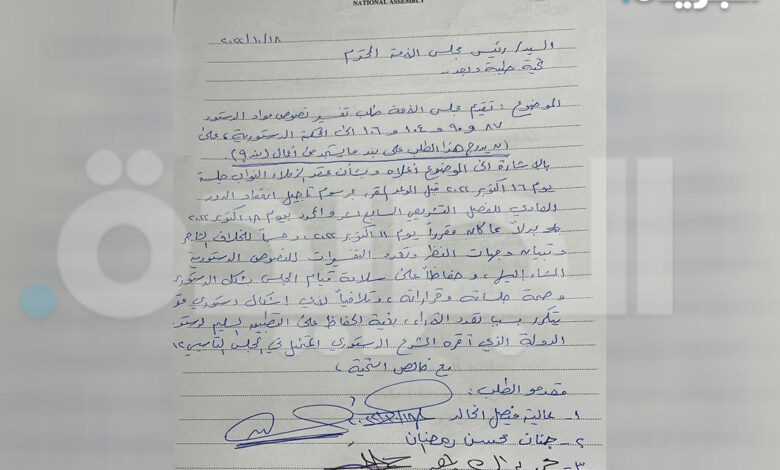 NATIONAL ASSEMBLY
٢٠٢٢/١٠/١٨
السيد/ رئيس مجلس الأمة المحترم
تحية طيبة وبعد،،
الموضوع: تقديم مجلس الأمة طلب تفسير نصوص مواد الدستور
٨٧ و ٩٠ و ١٠٤ و ١٠٦ إلى المحكمة الدستورية، على
أن يدرج هذا الطلب على بند ما يستجد من أعمال (بند ٩).
بالإشارة إلى الموضوع أعلاه وبشأن عقد الزملاء النواب جلسة
يوم ١٦ أكتوبر ٢٠٢٢ قبل الموعد المقرر بمرسوم تأجيل انعقاد الدور
العادي للفصل التشريعي السابع عشر والمحدد بيوم ١٨ أكتوبر ٢٠٢٢
بدلاً عما كان مقرراً يوم ١١ أكتوبر ٢٠٢٢، وحسماً للخلاف
وتباين وجهات النظر وتعدد التفسيرات للنصوص الدستورية
المشار إليها، وحفاظاً على سلامة قيام المجلس بشكله الدستوري
وصحة جلساته وقراراته، وتلافياً لأي إشكال دستوري
يتكرر بسبب تعدد القراء، بغية الحفاظ على التطبيق السليم
الدولة الذي أقره المشرع الدستوري المتمثل في المجلس التأسيسي
مع خالص التحية،
مقدمو الطلب:
١- عالية فيصل الخالد
٢- جنان محسن رمضان
٣-